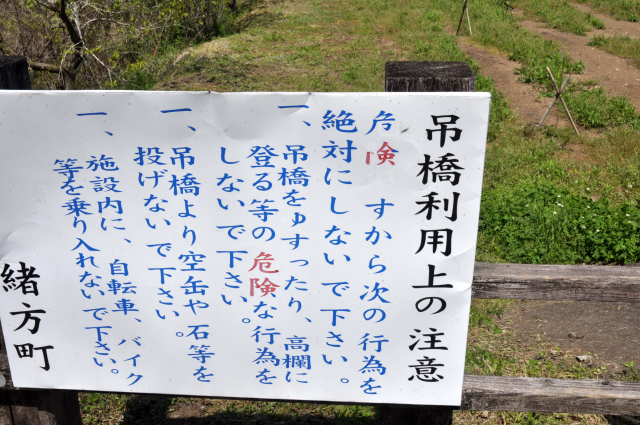 吊橋利用上の注意
危険 すから次の行為を
絶対にしないで下さい。
一、吊橋をゆすったり、高欄に
登る等の危険な行為を
しないで下さい。
一、吊橋より空缶や石等を
投げないで下さい。
一、施設内に、自転車、バイク
等を乗り入れないで下さい。
緒方町